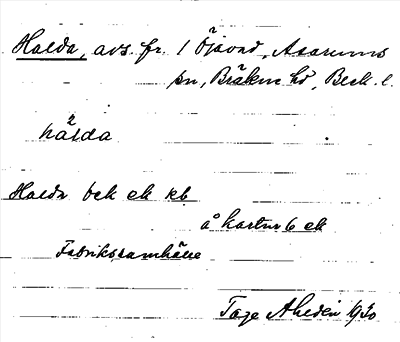 Halda, avs. fr. 1 Öjavad, Asarums
sn, Bräkne hd, Blek. l.
hálda
Halda bek ek kb
å kartor 6 ek
Fabrikssamhälle
Tage Ahldén 1930